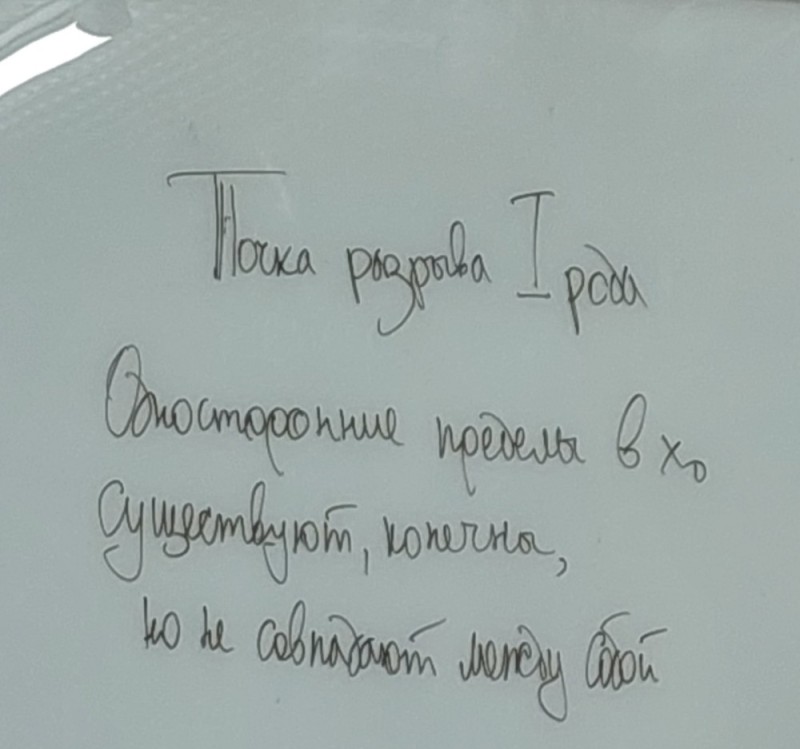 Точка разрыва I рода
Односторонние пределы в x₀
существуют, конечны,
но не совпадают между собой